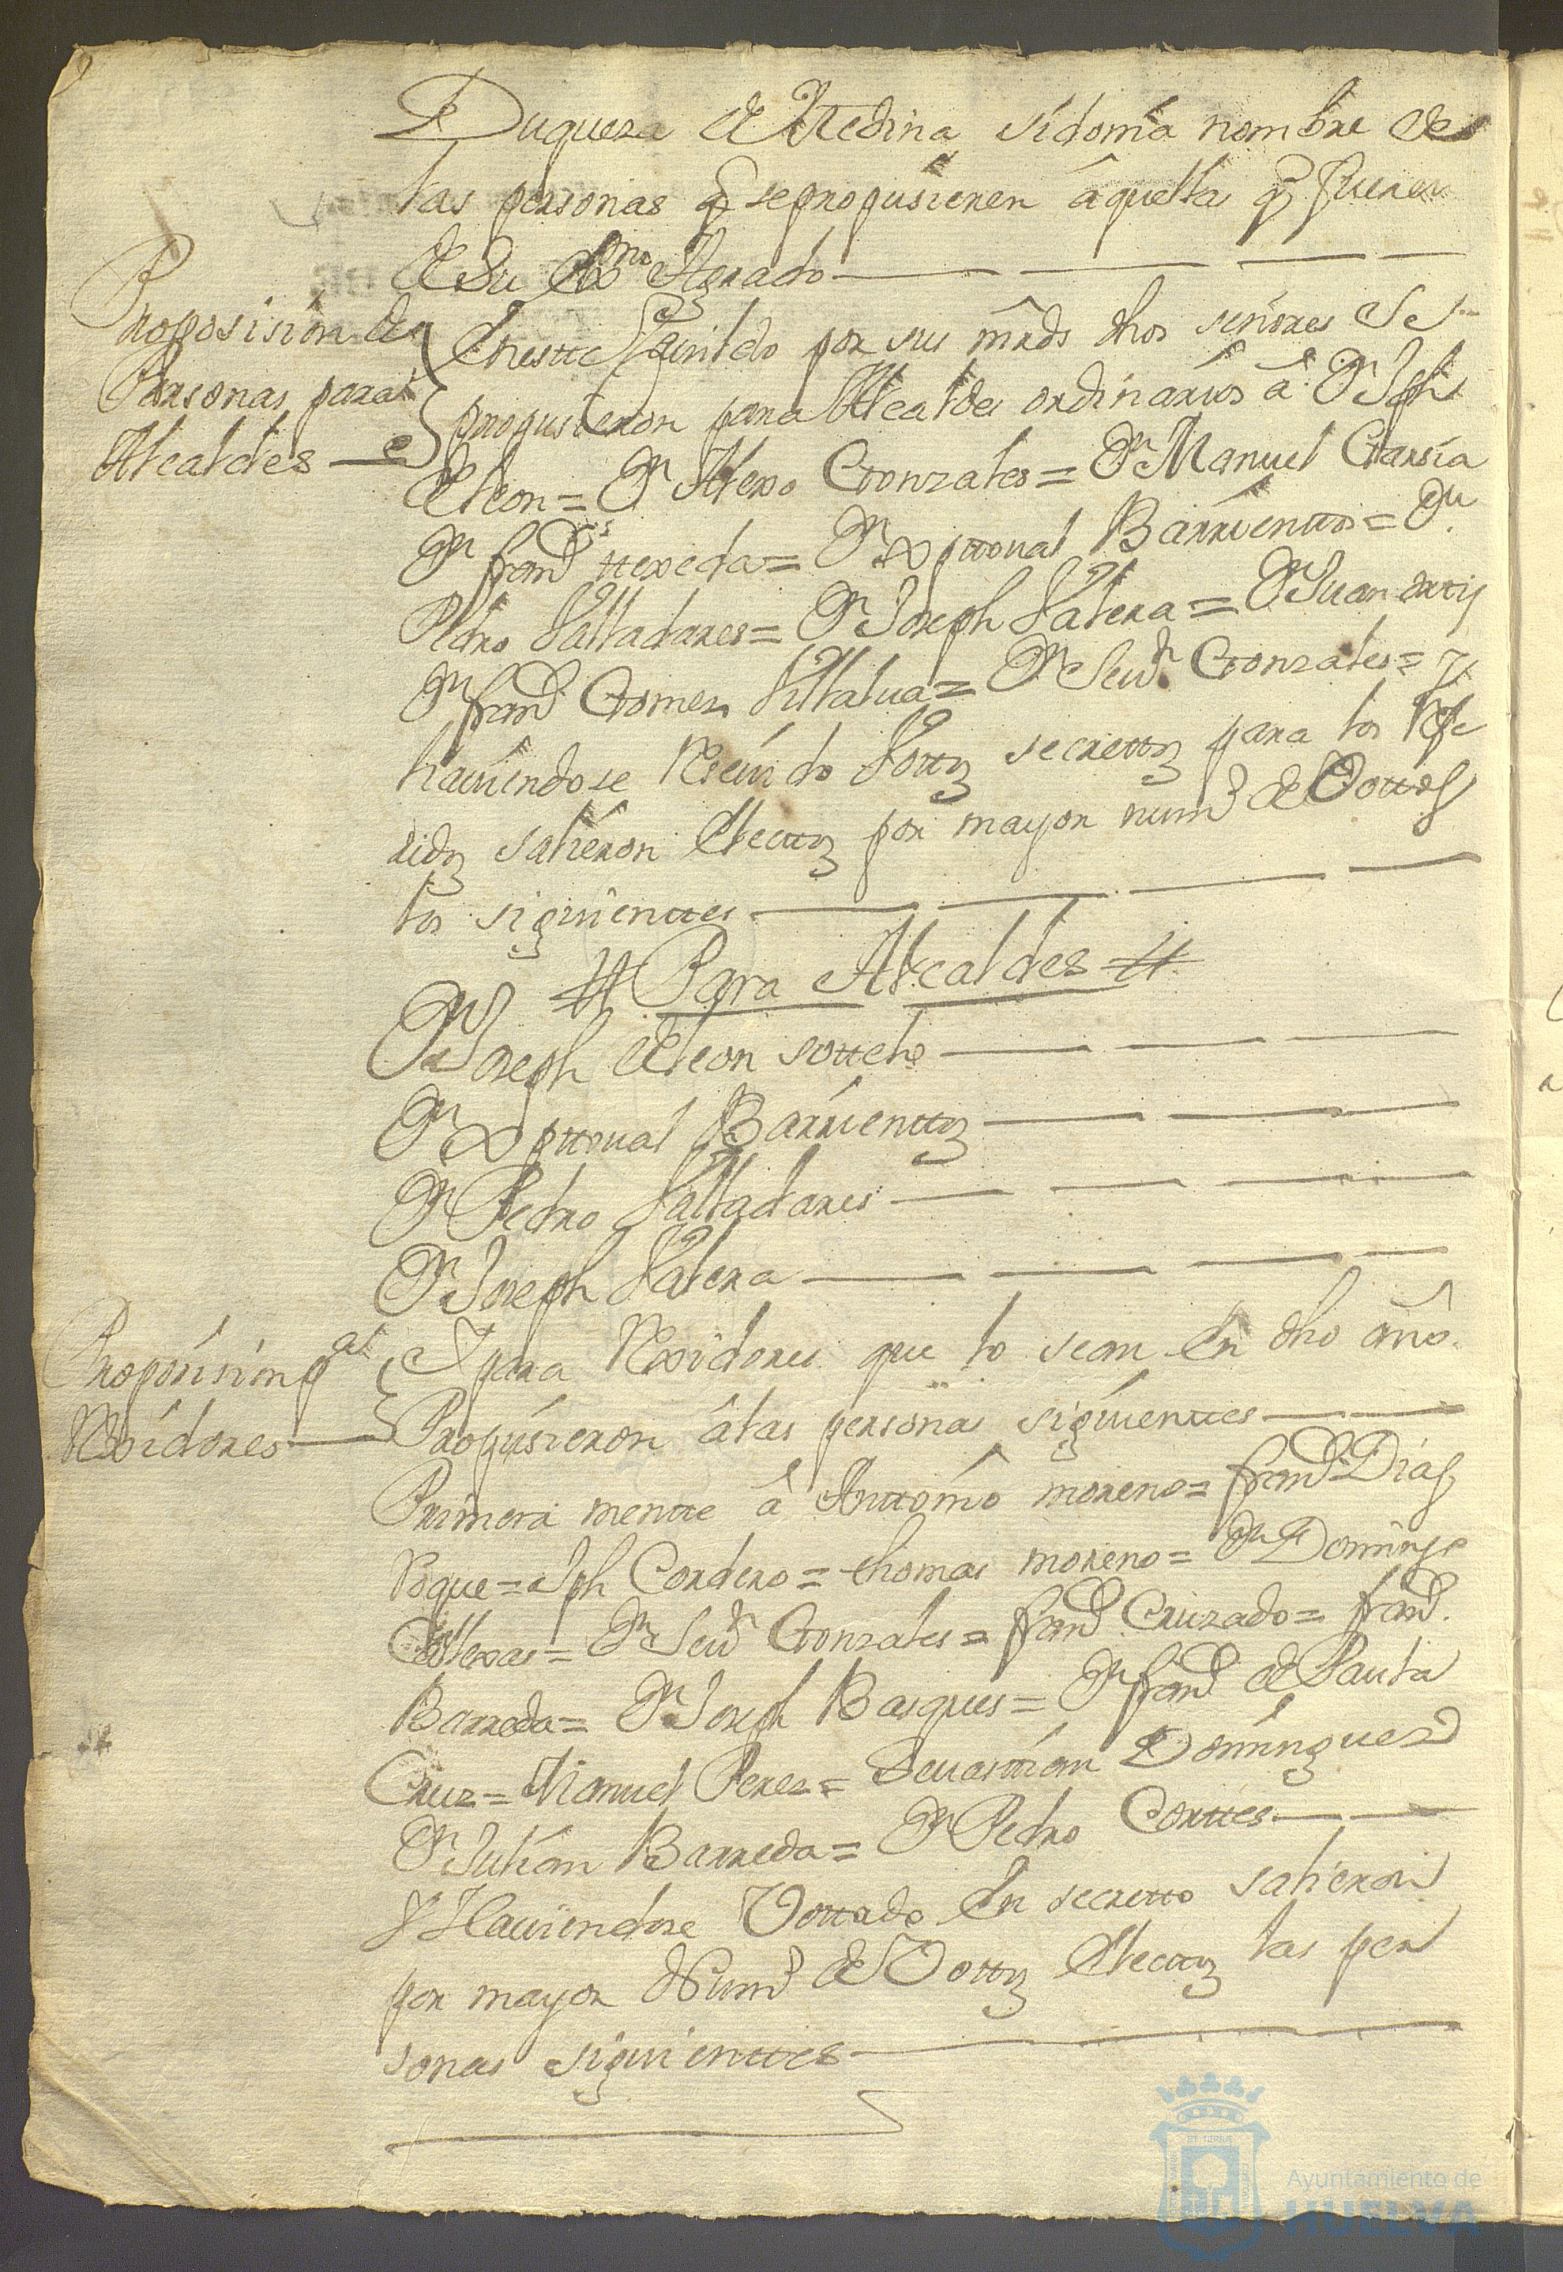 Duquesa de Medina sidonia nombre de
las personas q̃ se propusieren â quella q̃ fueren
de Su Exma Agrado
Proposision de
Personas para
Alcaldes
En este Cavildo por sus mrds dhos señores Se
propusieron para Alcaldes ordinarios â Dn Jph
de leon = Dn Alexo Gonzales = Dn Manuel Garsia
Dn franco ttexeda = Dn Xpttoval Barrienttos = Dn
Pedro Valladares = Dn Joseph Valera = Dn Juan orttis
Dn franco Gomez Villalva = Dn Sevn Gonzales = y
haviendose Resevido Vottos secrettos para los Refe
ridos salieron Electtos por mayor numo de Vottos
los siguienttes
# Para Alcaldes #
Dn Joseph de leon sottelo
Dn Xpttoval Barrienttos
Dn Pedro Valladares
Dn Joseph Valera
Proposision pat
Rexidores
Y para Rexidores que lo sean En dho año
Propusieron â las personas siguienttes
Primera mentte â Anttonio moreno = franco Dias
Roque = Jph Cordero = thomas moreno = Dn Domingo
Callexas = Dn Sevn Gonzales = franco Cruzado = franco
Barreda = Dn Joseph Basques = Dn franco de Paula
Cruz = Manuel Perez = Sevasttian Dominguez
Dn Julian Barreda = Dn Pedro Corttes
Y Haviendose Vottado En secretto salieron
por mayor Numo de Vottos Electtos las per
sonas siguienttes
Ayuntamiento de
HUELVA